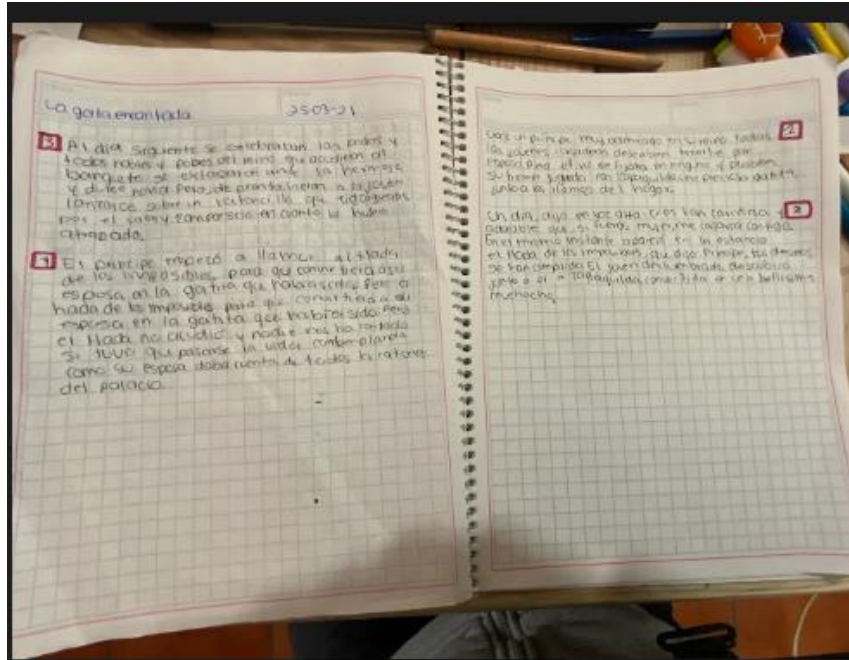 La gata encantada
25-03-21
3 Al dia siguiente se celebraban las bodas y
todos nobles y pobes del reino que acudieron al
banquete se extasiaron ante la hermosa
y dulce novia Pero, de pronto, vieron a la joven
lanzarse sobre un ratoncillo que
por el salon y zamparselo en cuanto lo hubo
atrapado.
El principe empezó a llamar al Hada
de los imposibles para que convirtiera a su
esposa en la gatita que habia sido. Pero el
hada de los imposibles para que convirtiera a su
esposa en la gatita que habia sido. Pero
el Hada no acudió, y nadie nos ha contado
si tuvo que pasarse la vida contemplando
como su esposa daba cuenta de todos los ratones
del palacio.
un principe muy admirado en su reino. Todas
las jovenes casaderas deseaban tenerle por
esposo. Pero el no se fijaba en ninguna y pasaba
su tiempo jugando con una preciosa gatita,
junto a las llamas del hogar.
Un dia, dijo en voz alta: Eres tan cariñosa y
adorable que, si fueras mujer, me casaria contigo.
En el mismo instante aparecio en la estancia
el Hada de los imposibles, que dijo: Principe, tus deseos
se han cumplido El joven, deslumbrado, descubrio
junto a el a convertida en una bellisima
muchacha.